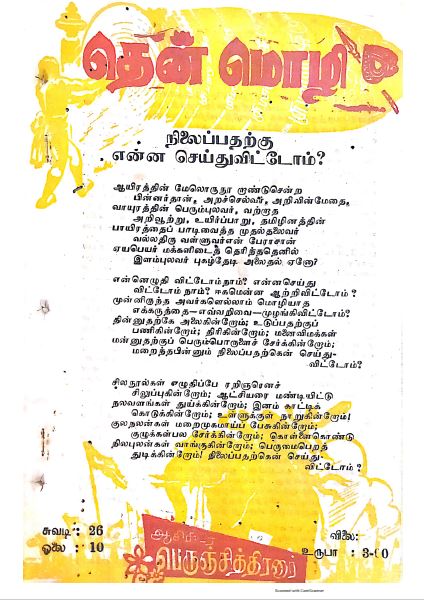 தென் மொழி
நிலைப்பதற்கு
என்ன செய்துவிட்டோம்?
ஆயிரத்தின் மேலொருநூ றாண்டுசென்ற
பின்னர்தான், அறச்செல்வீர், அறிவின்மேதை,
வாயுரத்தின் பெரும்புலவர், வற்றாத
அறிவூற்று, உயிர்ப்பாறு, தமிழினத்தின்
பாயிரத்தைப் பாடிவைத்த முதல்தலைவர்
வல்லதிகு வள்ளுவர்என் பேராசான்
ஏயபெயர் மக்களிடைத் தெரித்ததெனில்
இளம்புலவர் புகழ்தேடி அலைதல் ஏனோ?
என்னஎழுதி விட்டோம்நாம்? என்னசெய்து
விட்டோம் நாம்? ஈகமென்ன ஆற்றிவிட்டோம்?
முன்னிருந்த அவர்களெல்லாம் மொழியாத
எக்கருத்தை—எவ்வறிவை—முழங்கிவிட்டோம்?
தின்னுதற்கே அலைகின்றோம்; உடுப்பதற்குப்
பணிகின்றோம்; திரிகின்றோம்; மனைவிமக்கள்
மன்னுதற்குப் பெரும்பொருளைச் சேர்க்கின்றோம்;
மறைந்தபின்னும் நிலைப்பதற்கென் செய்து-
விட்டோம்?
சிலநூல்கள் எழுதிப்பே ரறிஞரெனச்
சிலுப்புகின்றோம்; ஆட்சியரை மண்டியிட்டு
நலவளங்கள் துய்க்கின்றோம்; இனம் காட்டிக்
கொடுக்கின்றோம்; உள்ளுக்குள் நாறுகின்றோம்!
குலநலன்கள் மறைமுகமாய்ப் பேசுகின்றோம்;
குழுக்கள்பல சேர்க்கின்றோம்; கொள்ளைகொண்டு
நிலபுலன்கள் வாங்குகின்றோம்; பெருமைபெறத்
துடிக்கின்றோம்! நிலைப்பதற்கென் செய்து-
விட்டோம்?
சுவடி: 26
ஓலை: 10
ஆசிரியர்
பெருஞ்சித்திரனார்
விலை:
உருபா : 3-00
Scanned with CamScanner